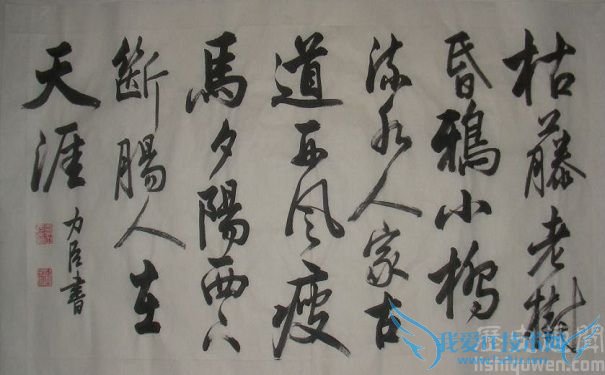 枯藤老樹
昏鴉小橋
流水人家古
道西風瘦
馬夕陽西下
斷腸人在
天涯
力臣書
lishiquwen.com